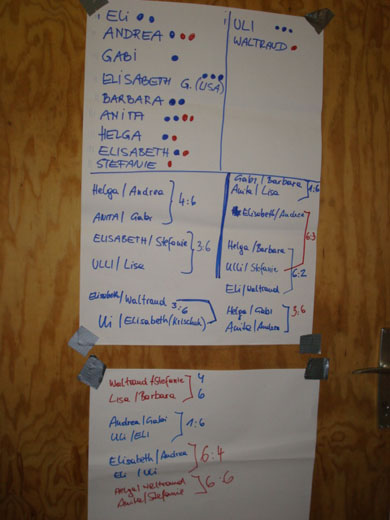 ELi
ANDREA
GABi
ELiSABETH G. (LiSA)
BARBARA
ANiTA
HELGA
ELiSABETH
STEFANiE
ULi
WALTRAUD
Helga / Andrea
4:6
ANiTA / Gabi
ELiSABETH / Stefanie
3:6
ULLi / Lisa
Elisabeth / Waltraud
3:6
Uli / Elisabeth
Gabi / Barbara
1:6
Anita / Lisa
Elisabeth / Andrea
6:3
Helga / Barbara
Ulli / Stefanie
6:2
Eli / Waltraud
Helga / Gabi
3:6
Anita / Andrea
Waltraud + Stefanie 4
Lisa / Barbara 6
Andrea / Gabi
1:6
Uli / ELi
Elisabeth / Andrea
6:4
Eli / Uli
Helga / Waltraud
6:6
Anita / Stefanie